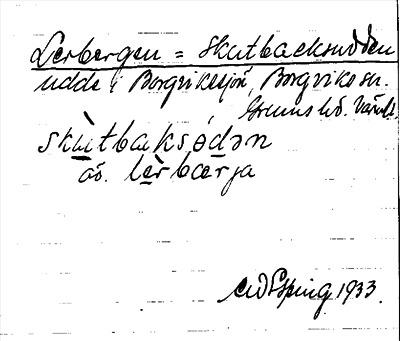 Lerbergen = Skutbacksudden
udde i Borgvikesjön, Borgviks sn.
Grums hd. Värml.
skùtbaksódən
äv. lèrbærja
1933.